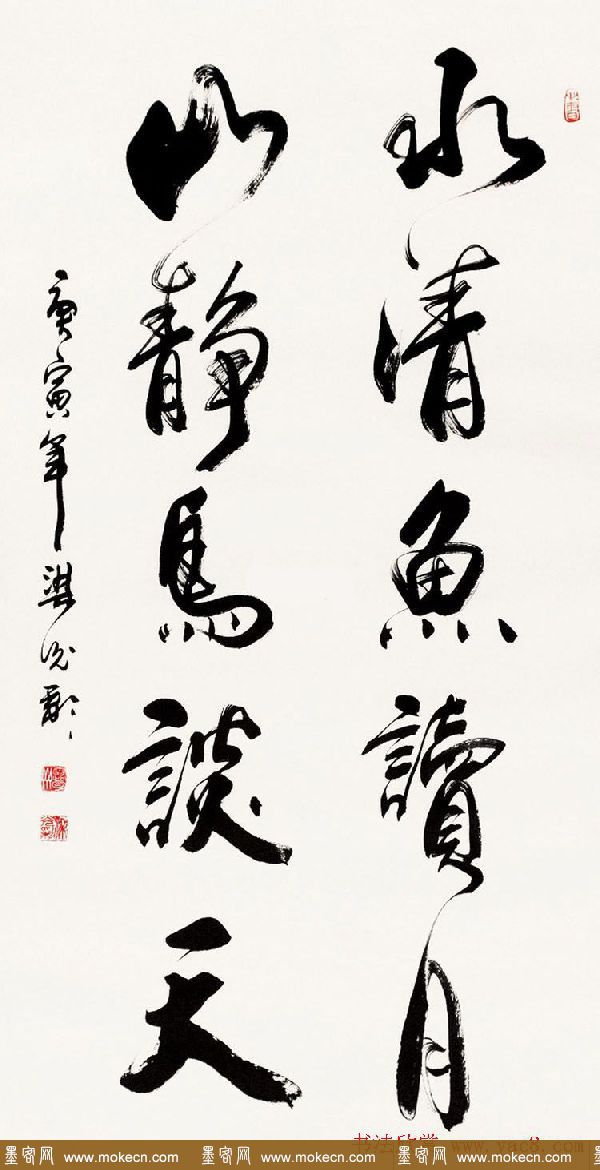 水清魚讀月
山靜鳥談天
庚寅年
书法欣赏 www.yac8.com
墨客网 www.mokecn.com 墨客网 www.mokecn.com 墨客网 www.mokecn.com